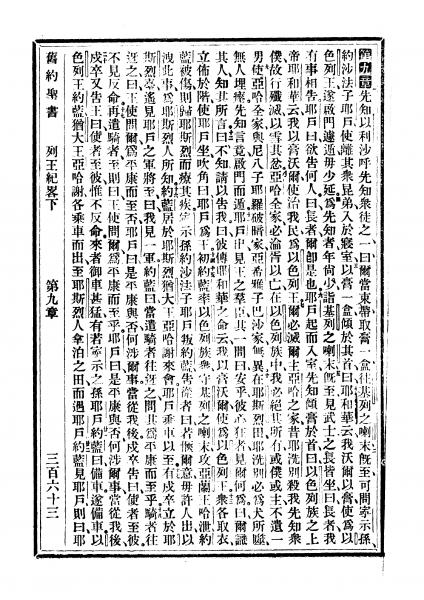 第九章先知以利沙呼先知衆徒之一曰爾當束帶取膏一盒往基列之喇末旣至可問寧示孫
約沙法子耶戶使離其衆昆弟入於寢室以膏一盒傾於其首曰耶和華云我沃爾以膏使爲以
色列王遂啟門遽遁毋少延爲先知者年尙少詣基列之喇末旣至見武士之長皆坐曰長者我
有事相告耶戶曰欲告何人曰長者爾卽是也耶戶起而入室先知傾膏於首曰以色列族之上
帝耶和華云我以膏沃爾使治我民爲以色列王爾必滅爾主亞哈之家昔耶洗別殺我先知衆
僕故行殲滅以雪其忿亞哈全家必淪胥以亡在以色列族中我必絕其所有或僕或主不遺一
男使亞哈全家與尼八子耶羅破暗家亞希雅子巴沙家無異在耶斯烈田耶洗別必爲犬所噬
無人埋瘞先知言竟啟門而遁耶戶出見王之羣臣其一問曰安乎彼心狂者見爾何爲曰爾識
其人知其言曰不知請以告我曰彼傳耶和華之命云我以膏沃爾使爲以色列王衆各取衣
立佈於階使耶戶坐吹角曰耶戶爲王初約藍率以色列族衆守基列之喇末攻亞蘭王哈泄約
藍被傷則歸耶斯烈而療其疾寧示孫約沙法子耶戶叛約藍告從者曰若愜爾意毋許人出以
洩此事爲耶斯烈人所知約藍居於耶斯烈猶大王亞哈謝來會耶戶乘車以至有戍卒立於耶
斯烈臺遙見耶戶之軍將至曰我見一軍約藍曰當遣騎者往迓之問其爲平康而至乎騎者往
迓之曰王使問爾爲平康而至否耶戶曰是平康與否何涉爾事當從我後戍卒告曰使者至彼
不見反命再遣騎者至則曰王使問爾爲平康而至乎耶戶曰是平康與否何涉爾事當從我後
戍卒又告王曰使者至彼惟不反命來者御車甚猛有若寧示之孫耶戶約藍曰備車遂備車以
色列王約藍猶大王亞哈謝各乘車而出至耶斯烈人拿泊之田而遇耶戶約藍見耶戶則曰耶
舊約聖書 列王紀畧下 第九章 三百六十三